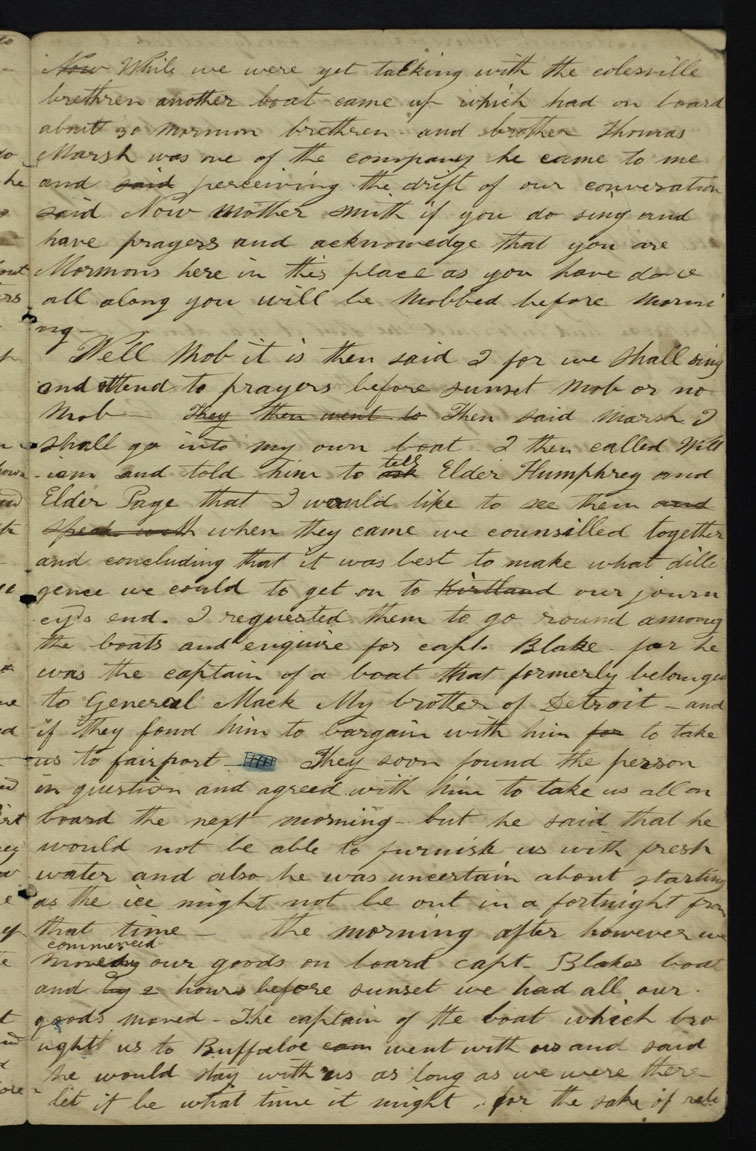 Now While we were yet talking with the colesville
brethren another boat came up which had on board
about 30 mormon brethren and brother Thomas
Marsh was one of the company he came to me
and said perceiving the drift of our conversation
said Now Mother smith if you do sing and
have prayers and acknowedge that you are
Mormons here in this place as you have done
all along you will be Mobbed before morni
ng-
Well Mob it is then said I for we shall sing
and attend to prayers before sunset Mob or no
Mob- They then went to Then said Marsh I
shall go into my own boat. I then called Will
-iam and told him to ask tell Elder Humphrey and
Elder Page that I would like to see them and
speak with when they came we counsilled together
and concluding that it was best to make what dilli
gence we could to get on to Kirtland our journ
ey's end. I requested them to go round among
the boats and enquire for capt. Blake. for he
was the captain of a boat that formerly belonged
to General Mack My brother of Detroit- and
if they fond him to bargain with him for to take
us to fairport- They soon found the person
in question and agreed with him to take us all on
board the next morning- but he said that he
would not be able to furnish us with fresh
water and also he was uncertain about starting
as the ice might not be out in a fortnight from
that time- the morning after however we
commenced
moveing our goods on board capt. Blakes boat
and by 2 hours before sunset we had all our
goods moved- The captain of the boat which bro
ught us to Buffaloe cam went with us and said
he would stay with us as long as we were there-
let it be what time it might. for the sake of